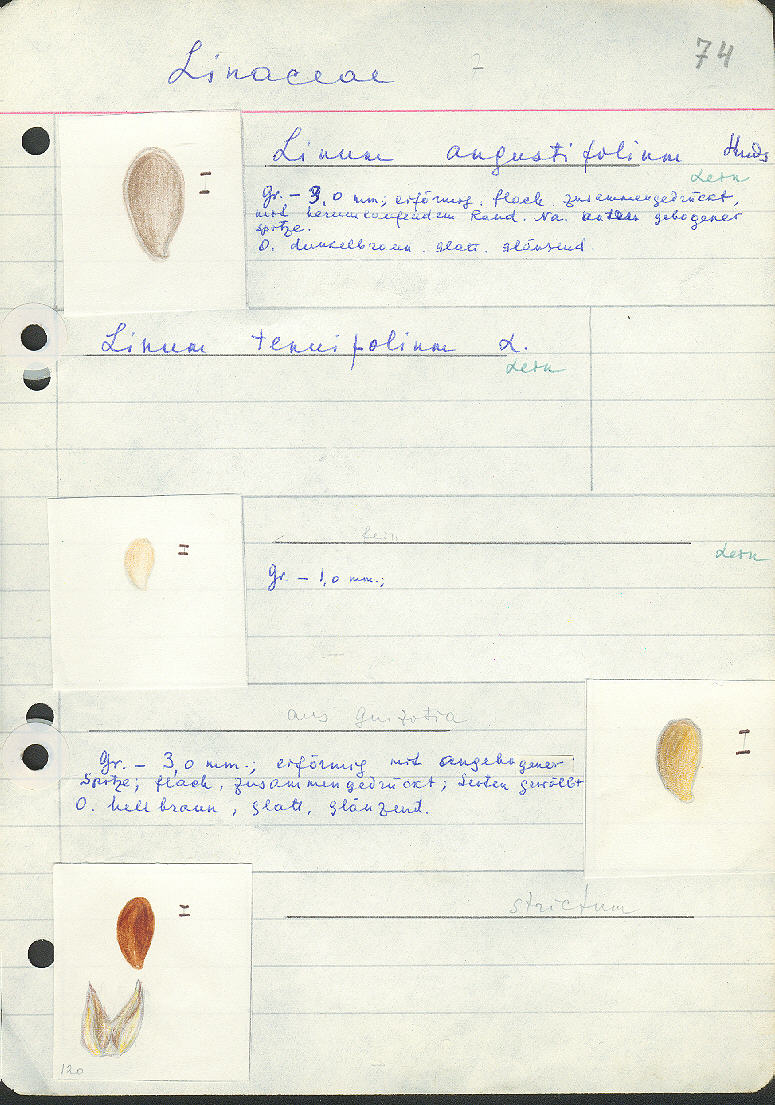 74
Linaceae
Linum angustifolium Huds
Lein
Gr. – 3,0 mm; eiförmig. flach. zusammengedrückt,
mit herumlaufendem Rand. Na. gebogener
Spitze.
O. dunkelbraun. glatt. glänzend
Linum tenuifolium L.
Lein
Lein
Lein
Gr. – 1,0 mm.;
aus Guizotia
Gr. – 3,0 mm.; eiförmig mit angebogener
Spitze; flach, zusammengedrückt; Seiten gewölbt
O. hellbraun, glatt, glänzend.
strictum
120